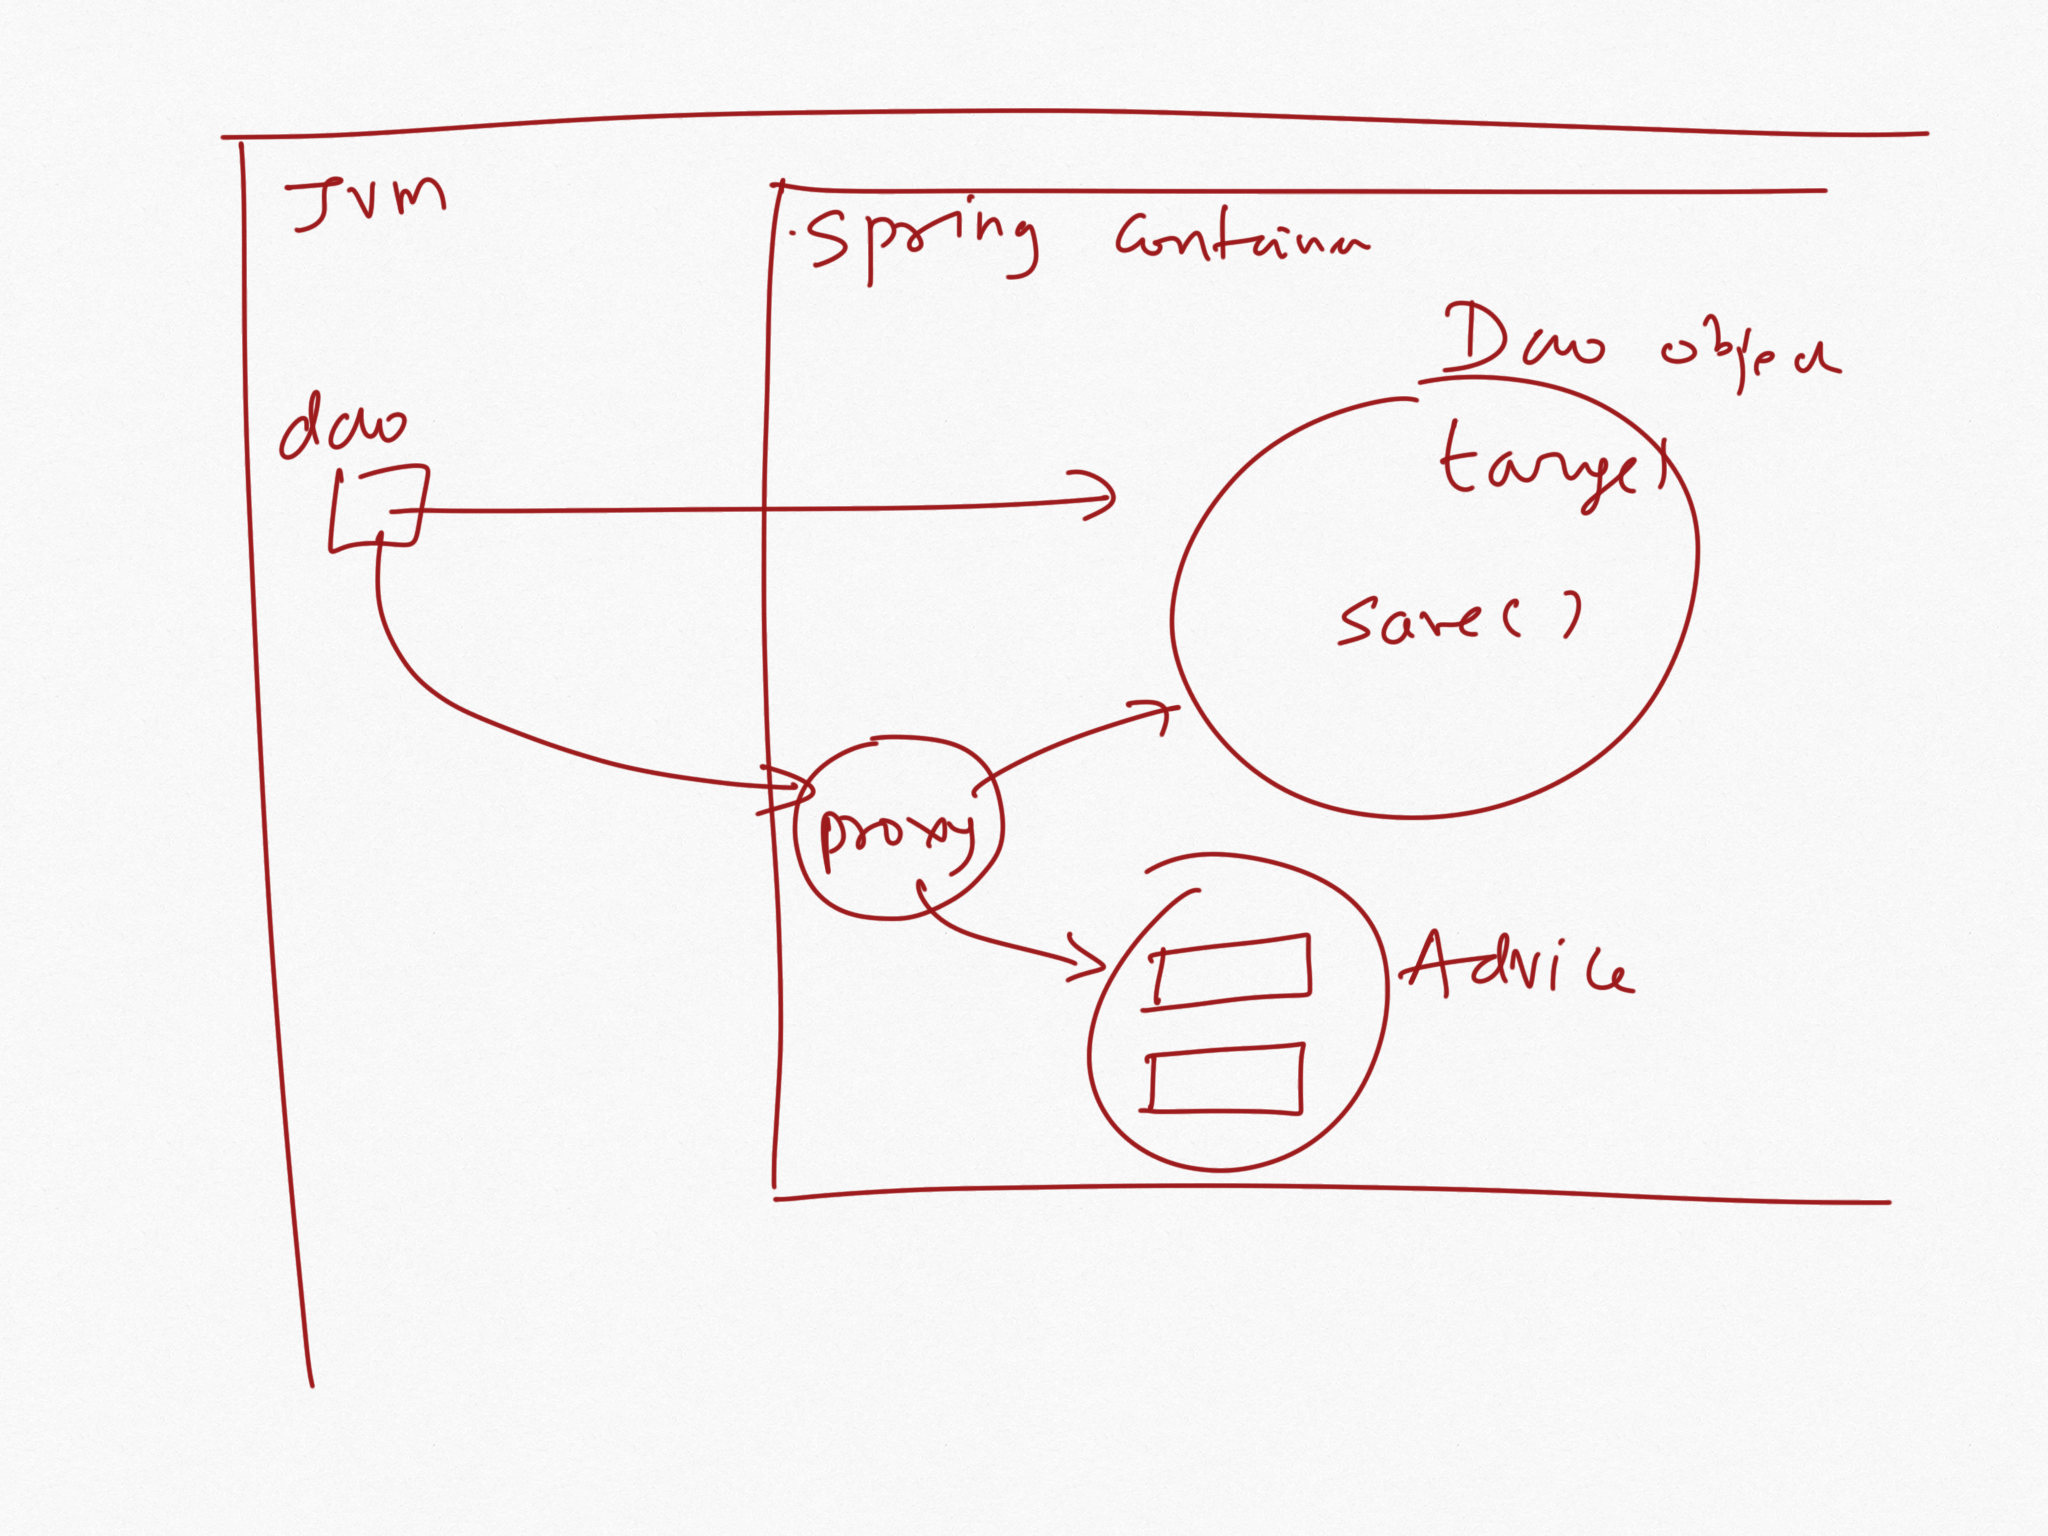 Jvm
Spring Container
Dao object
dao
target
save()
proxy
Advice